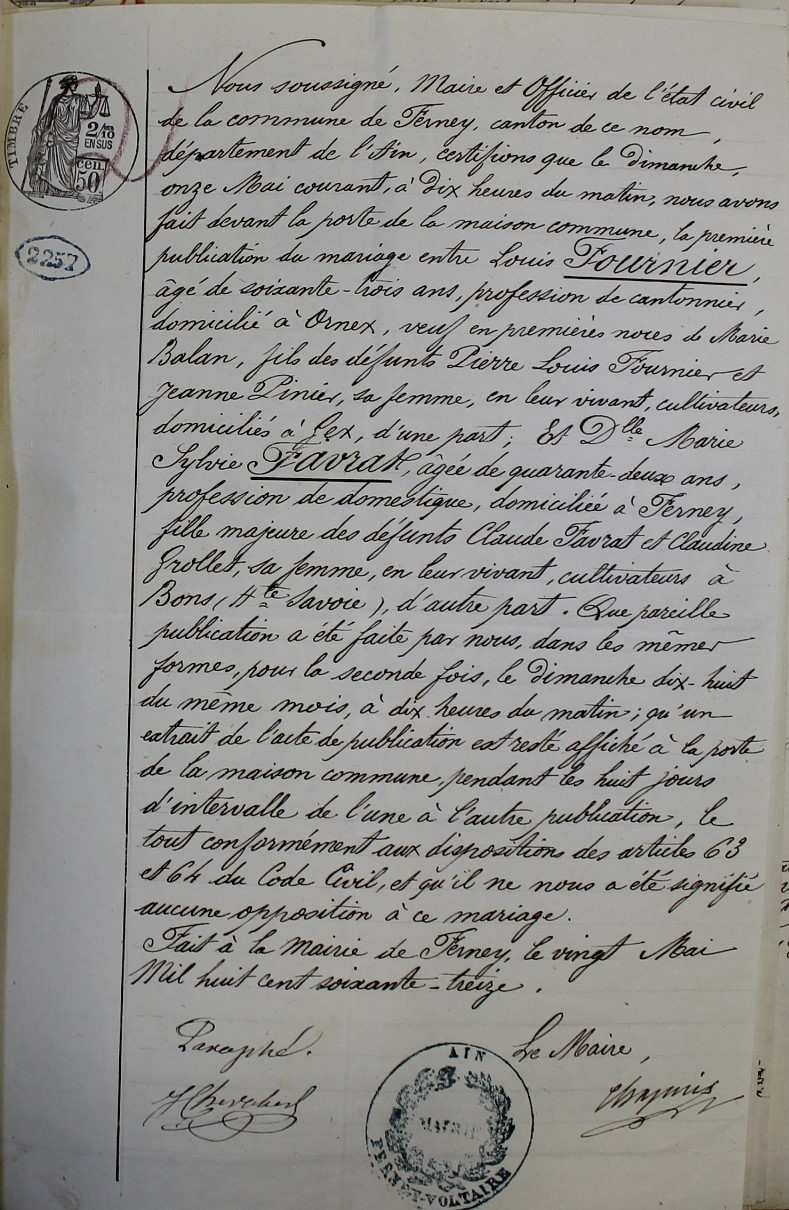 TIMBRE
2/10
EN SUS
50
cen
2257
Nous soussigné, Maire et Officier de l'état civil
de la commune de Ferney, canton de ce nom,
département de l'Ain, certifions que le dimanche,
onze Mai courant, à dix heures du matin, nous avons
fait devant la porte de la maison commune, la première
publication du mariage entre Louis Fournier,
âgé de soixante-trois ans, profession de cantonnier,
domicilié à Ornex, veuf en premières noces de Marie
Balan, fils des défunts Pierre Louis Fournier et
Jeanne Pinier, sa femme, en leur vivant, cultivateurs,
domiciliés à Gex, d'une part; Et Dlle Marie
Sylvie Favrat, âgée de quarante-deux ans,
profession de domestique, domiciliée à Ferney,
fille majeure des défunts Claude Favrat et Claudine
Grollet, sa femme, en leur vivant, cultivateurs à
Bons (Hte Savoie), d'autre part. Que pareille
publication a été faite, par nous, dans les mêmes
formes, pour la seconde fois, le dimanche dix-huit
du même mois, à dix heures du matin; qu'un
extrait de l'acte de publication est resté affiché à la porte
de la maison commune, pendant les huit jours
d'intervalle de l'une à l'autre publication, le
tout conformément aux dispositions des articles 63
et 64 du Code Civil, et qu'il ne nous a été signifié
aucune opposition à ce mariage.
Fait à la Mairie de Ferney, le vingt Mai
Mil huit cent soixante-treize.
Paraphé. Le Maire,
AIN
MAIRIE
FERNEY-VOLTAIRE